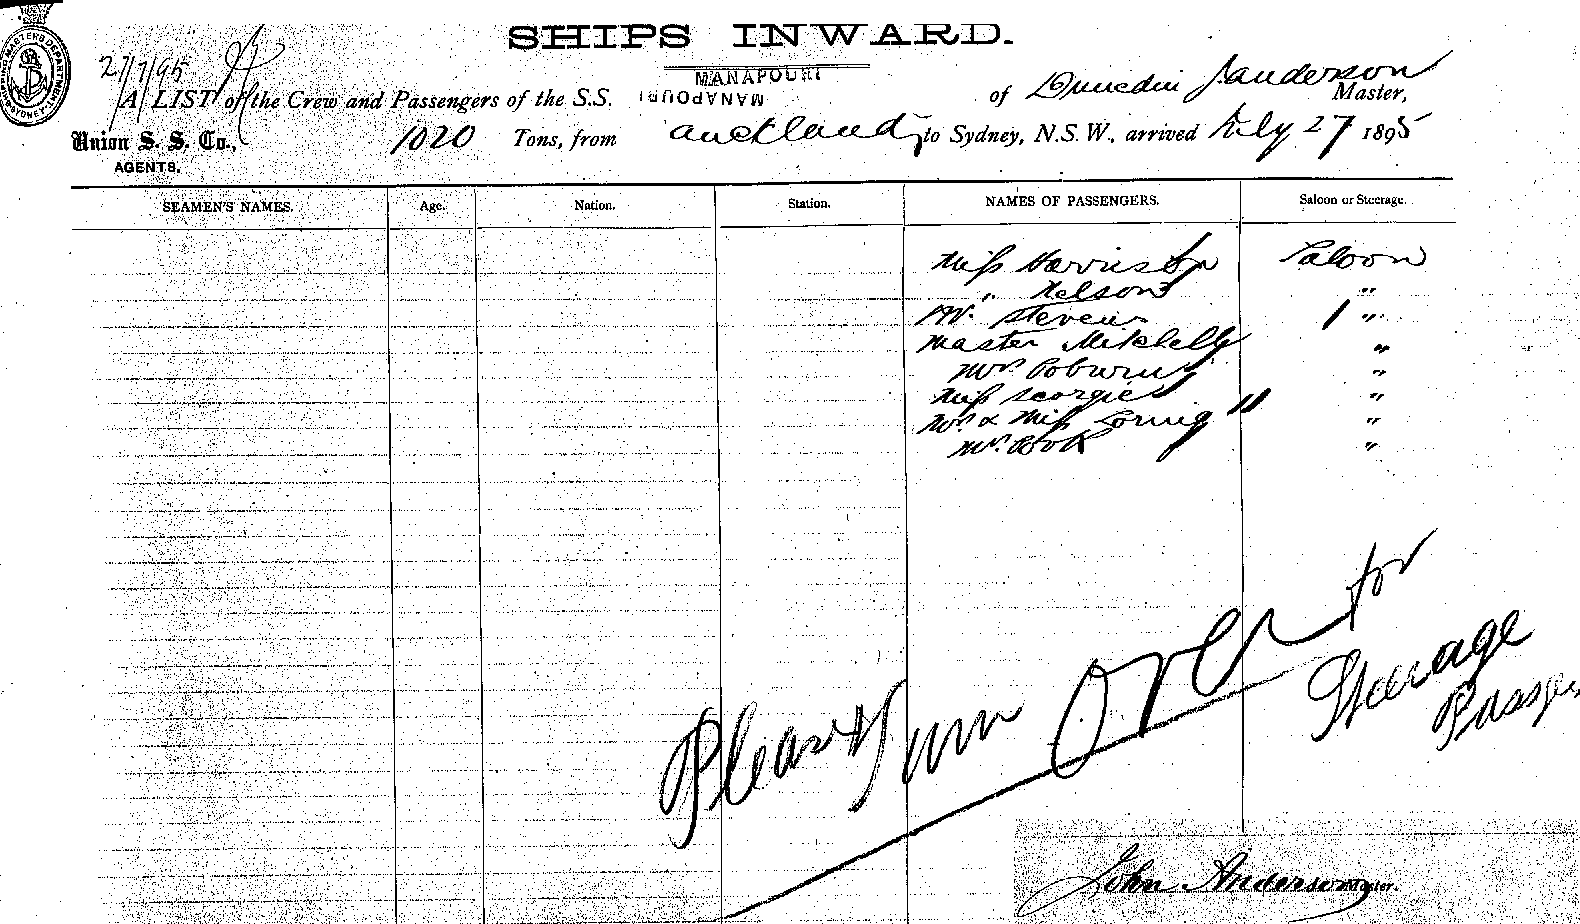 SHIPS INWARD.
27/7/95
MANAPOURI
A LIST of the Crew and Passengers of the S.S. MANAPOURI of Dunedin J Anderson Master,
Union S. S. Co., 1020 Tons, from Auckland to Sydney, N.S.W., arrived July 27 1895
AGENTS.
SEAMEN'S NAMES. Age. Nation. Station. NAMES OF PASSENGERS. Saloon or Steerage.
Miss Harrison Saloon
" Nelson "
Mr. Stevens "
Master "
Mrs "
Miss Scorgie "
Mr. & Miss "
Mr. Cook "
Please Turn Over for
Steerage
John Anderson Master.